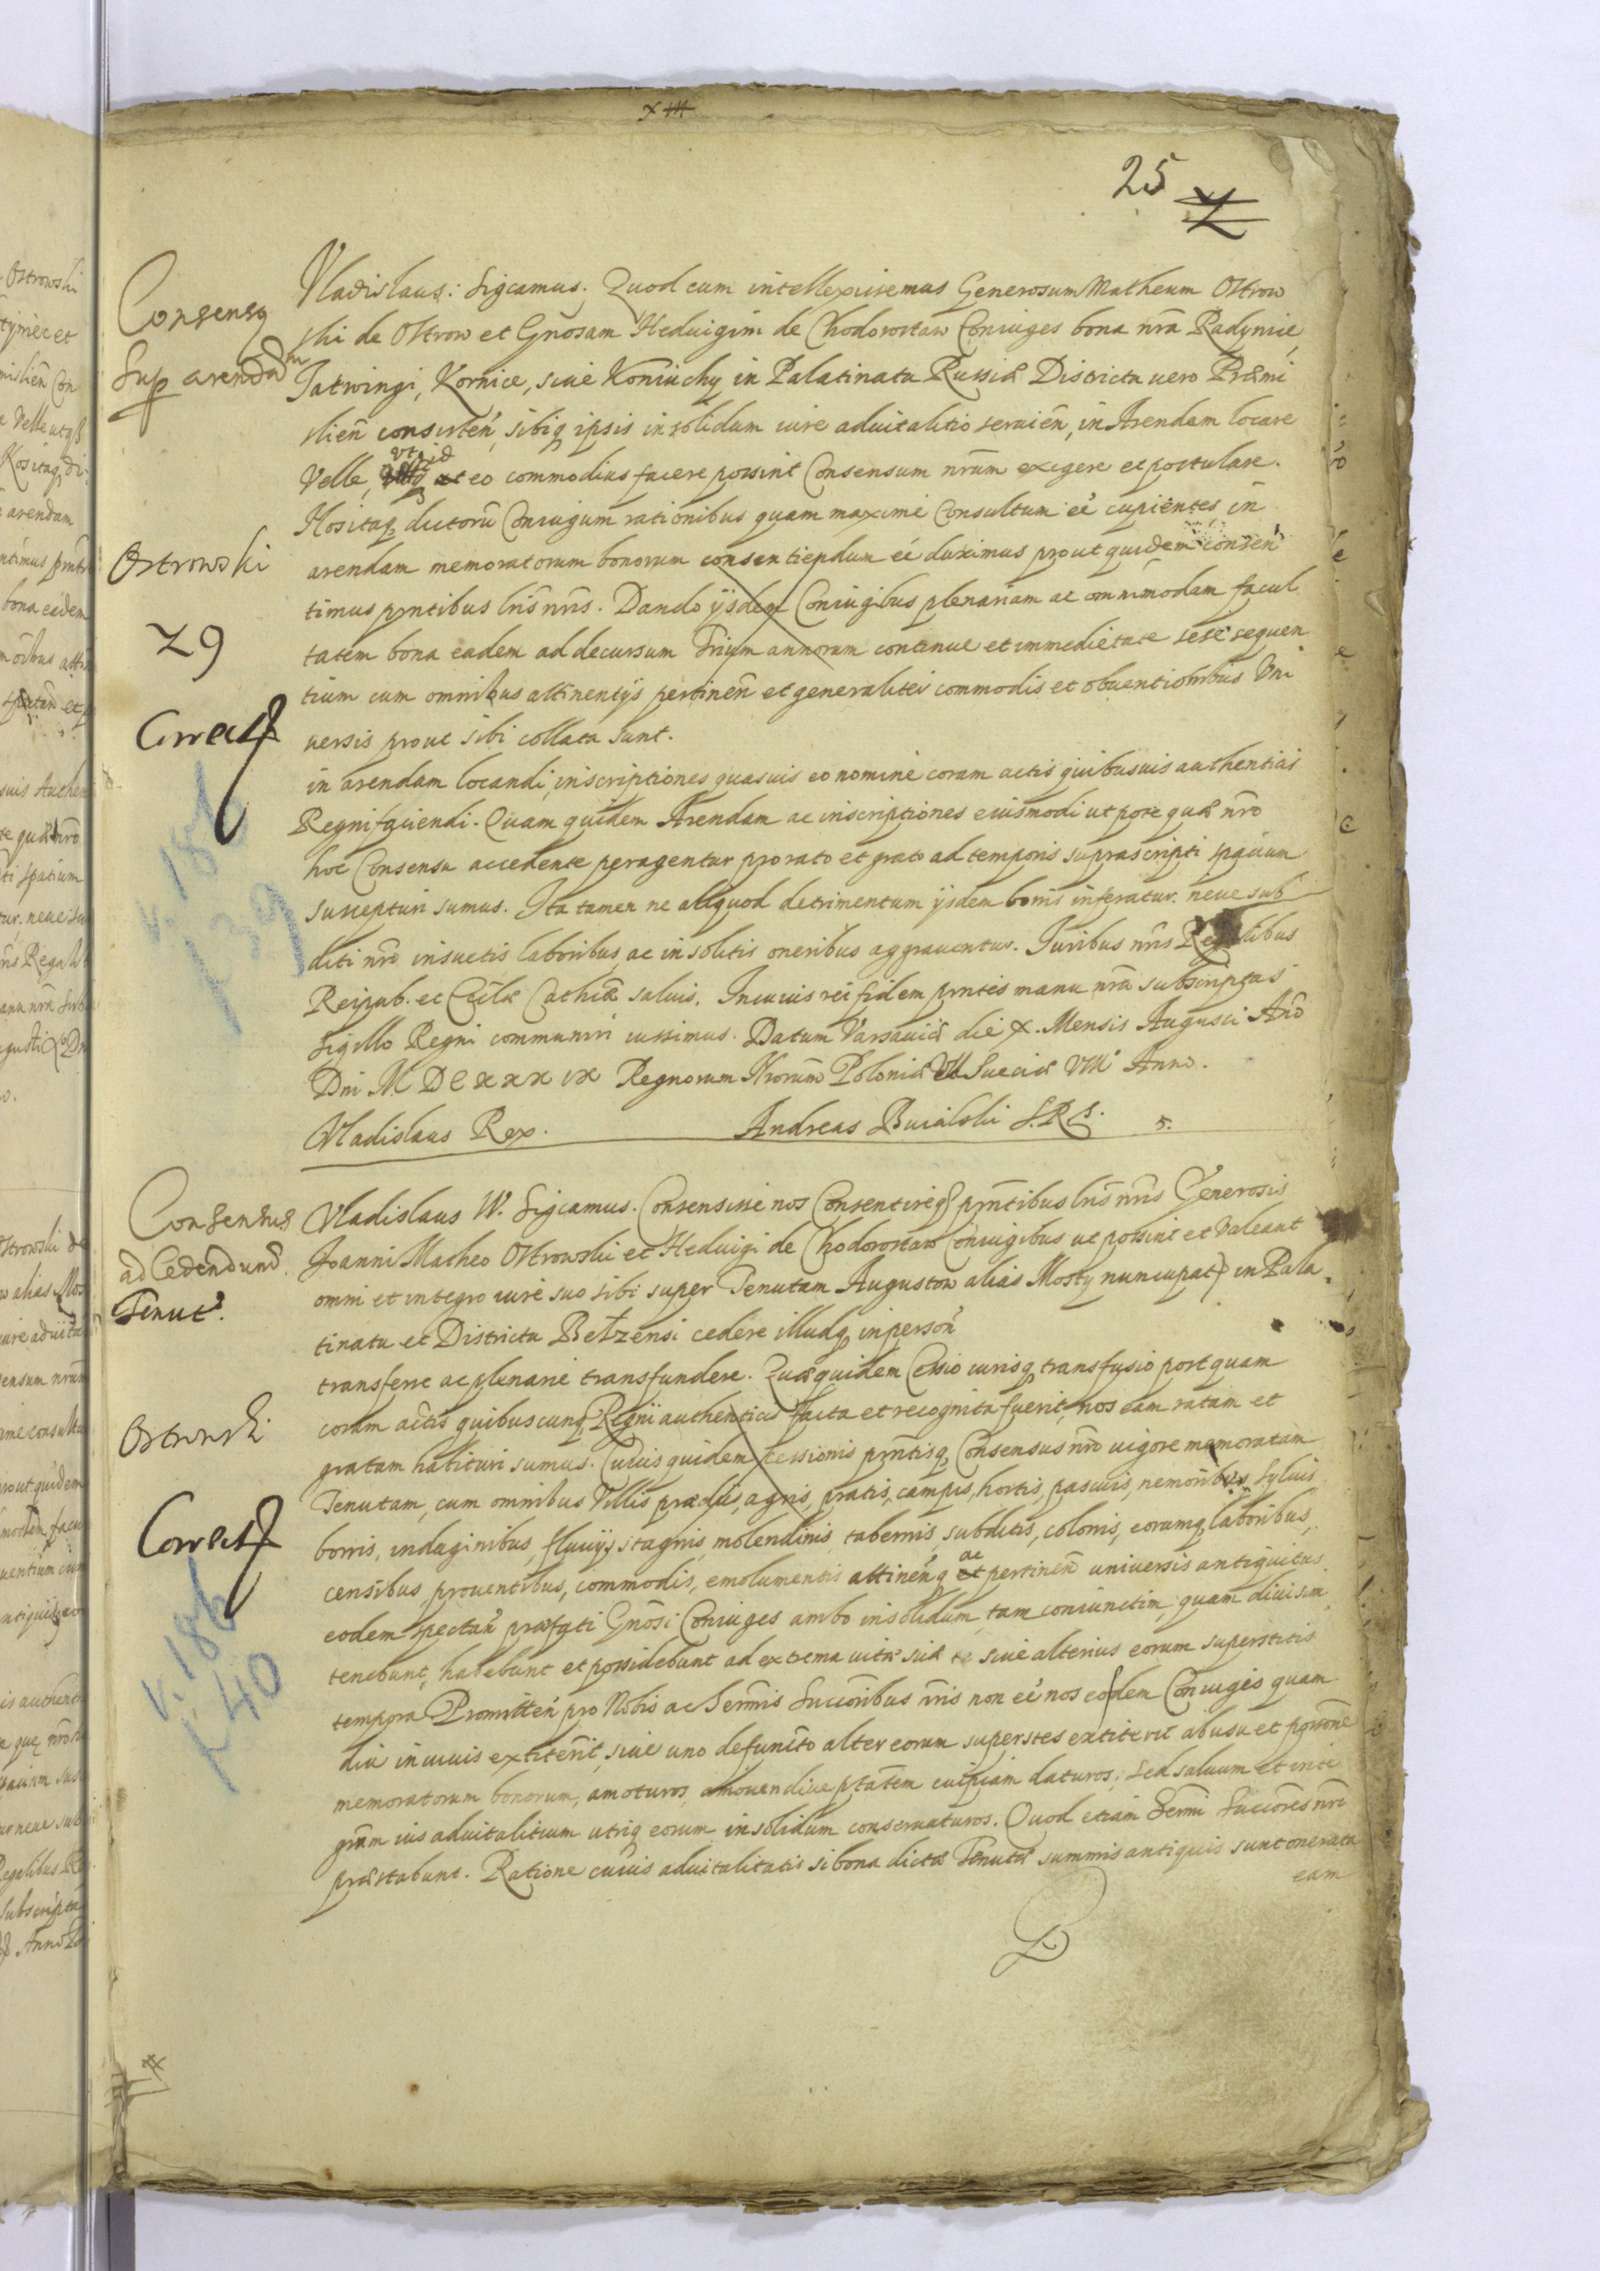 25
Consensq
sup arendam
Vladislaus: Sigcamus. Quod cum intellexissemus Generosum Matheum Ostrow
ski de Ostrow et Gnosam Hedvigim de Chodorostaw Coniuges bona nra Radynice
Jatwingi, Kornice, siue Koniuchy in Palatinatu Russiæ Districtu uero Præmi
slien consisten, sibiq ipsis insolidum iure aduitalitio seruien, in Arendam locare
Velle, vt id eo commodius facere possint Consensum nrum exigere et postulare.
Nos itaq dictorũ Coniugum rationibus quam maxime Consultum eé cupientes in
Ostrowski
arendam memoratorum bonorum consentiendum eé duximus prout quidem consen
timus pntibus lris nris. Dando ijsdem Coniugibus plenariam ac omnimodam facul
29
tatem bona eadem ad decursum Trium annorum continue et immedietate sese sequen
tium cum omnibus attinentijs pertinen et generaliter commodis et obuentionibus Vni
Correct
uersis prout sibi collata sunt.
in arendam locandi, inscriptiones quasuis eo nomine coram actis quibusuis authenticis
Regni faciendi. Quam quidem Arendam ac inscriptiones eiusmodi utpote quæ nro
v. 186
f 39
hoc Consensu accedente peragentur pro rato et grato ad temporis suprascripti spatium
suscepturi sumus. Ita tamen ne aliquod detrimentum ijsdem bonis inferatur. neue sub
diti nri insuetis laboribus, ac insolitis oneribus aggrauentur. Juribus nris Regalibus
Reipub. et Ecclæ Cathcæ saluis. In cuius rei fidem pntes manu nra subscriptas
sigillo Regni communiri iussimus. Datum Varsauiæ die X. Mensis Augusti Ano
Dni M. DCXXXIX Regnorum Nrorum Poloniæ VII Sueciæ VIII Anno.
Vladislaus Rex. Andreas Buialski S.R.S.
Consensus
ad Cedendum
Tenut.
Vladislaus IV. Sigcamus. Consensisse nos Consentireq pntibus lris nris Generosis
Joanni Matheo Ostrowski et Hedvigi de Chodorostaw Coniugibus ut possint et Valeant
omni et integro iure suo sibi super Tenutam Augustow alias Mosty nuncupat in Pala
tinatu et Districtu Bełzensi cedere illudq in person
transferre ac plenarie transfundere. Quæ quidem Cessio iurisq transfusio postquam
Ostrowski
coram actis quibuscunq Regni authenticis facta et recognita fuerit, nos eam ratam et
gratam habituri sumus. Cuius quidem cessionis pntisq Consensus nri uigore memoratam
Correct
Tenutam, cum omnibus Villis prædijs, agris, pratis, campis, hortis, pascuis, nemoribus, syluis
borris, indaginibus, fluuijs, stagnis, molendinis, tabernis, subditis, colonis, eorumq laboribus,
censibus, prouentibus, commodis, emolumentis attinen q ac pertinen uniuersis antiquitus
v. 186
f 40
eodem spectan præfati Gnosi Coniuges ambo insolidum, tam coniunctim, quam diuisim
tenebunt, habebunt et possidebunt ad extrema uitæ suæ siue alterius eorum superstitis
tempora Promitten pro Nobis ac Sermis Succoribus nris non eé nos eosdem Coniuges quam
diu in uiuis extiterit, siue uno defuncto alter eorum superstes extiterit ab usu et possone
memoratorum bonorum, amoturos, amouendiue ptatem cuipiam daturos; sed saluum et inte
grum ius aduitalitium utriq eorum insolidum conseruaturos. Quod etiam Sermi Succores nri
præstabunt. Ratione cuius aduitalitatis si bona dictæ Tenutæ summis antiquis sunt onerata
eam